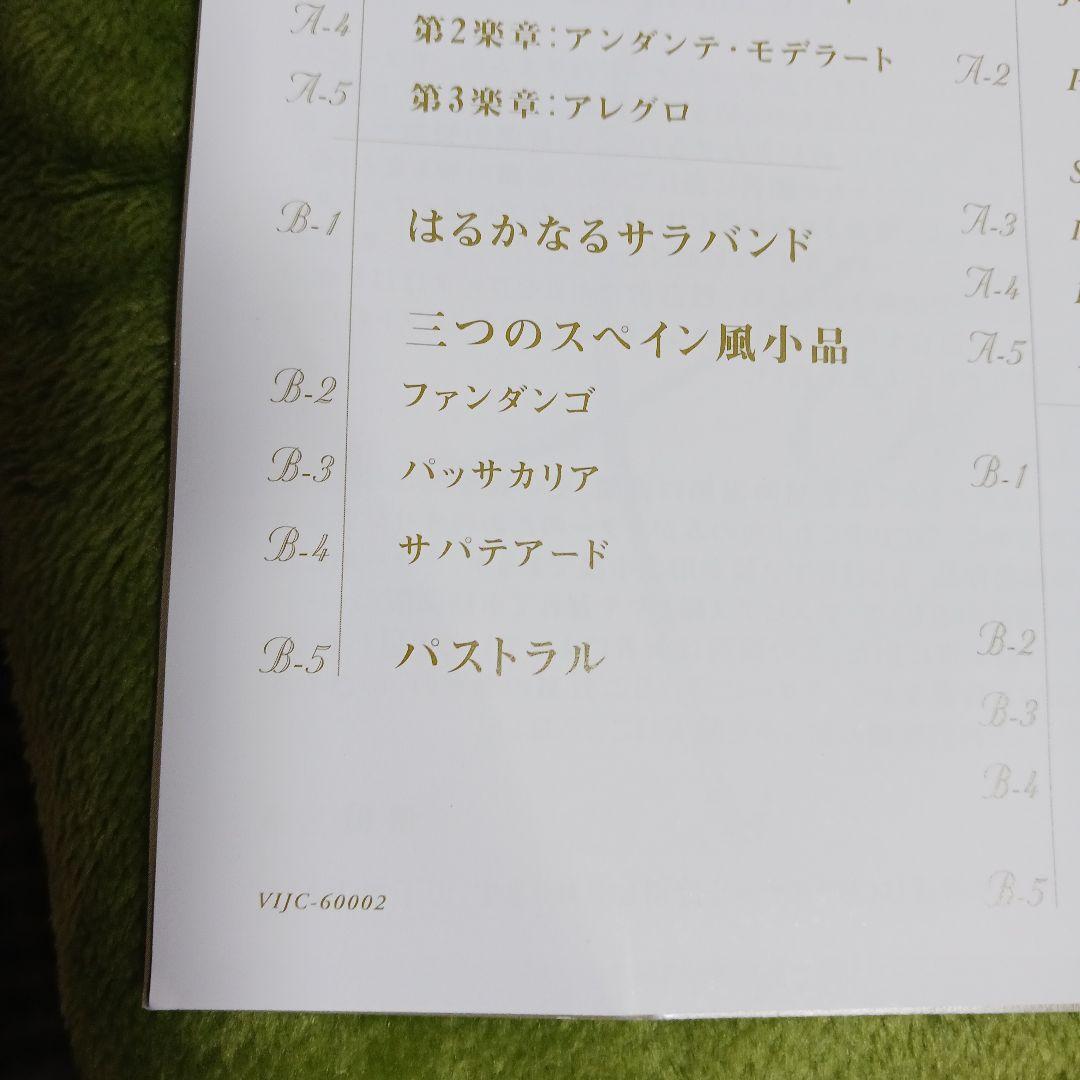 A-4 第2楽章：アンダンテ・モデラート
A-5 第3楽章：アレグロ
B-1 はるかなるサラバンド
三つのスペイン風小品
B-2 ファンダンゴ
B-3 パッサカリア
B-4 サパテアード
B-5 パストラル
VIJC-60002
A-2
A-3
A-4
A-5
B-1
B-2
B-3
B-4
B-5